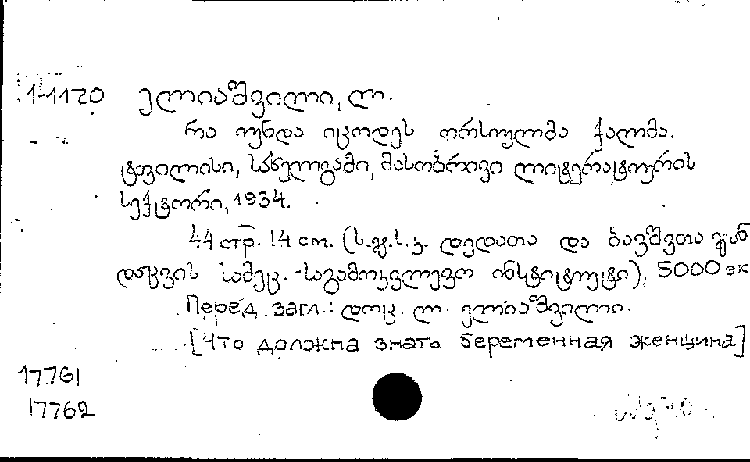 1-1120 ელიაშვილი, ლ.
რა უნდა იცოდეს ორსულმა ქალმა.
ტფილისი, სახელგამი, მასობრივი ლიტერატურის
სექტორი, 1934.
44 стр. 14 см. (ს.ფ.ს.კ. დედათა და ბავშვთა ჯან
დაცვის სამეც.-საგამოკვლევო ინსტიტუტი), 5000 эк
Перед загл.: დოც. ლ. ელიაშვილი.
[Что должна знать беременная женщина]
17761
17762